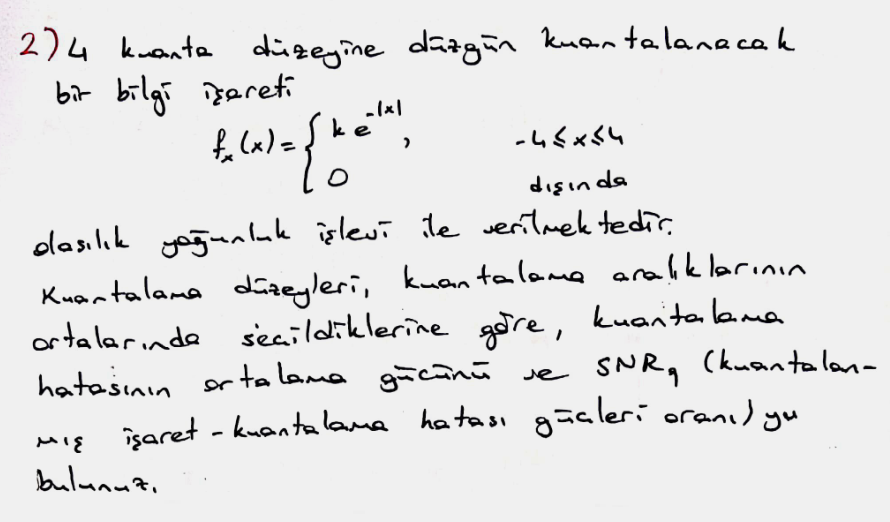 2) 4 kuanta düzeyine düzgün kuantalanacak
bir bilgi işareti
fₓ(x) = { k e^{-|x|}, -4 ≤ x ≤ 4
0 dışında
olasılık yoğunluk işlevi ile verilmektedir.
Kuantalama düzeyleri, kuantalama aralıklarının
ortalarında seçildiklerine göre, kuantalama
hatasının ortalama gücünü ve SNRq (kuantalan-
mış işaret - kuantalama hatası güçleri oranı) yu
bulunuz.